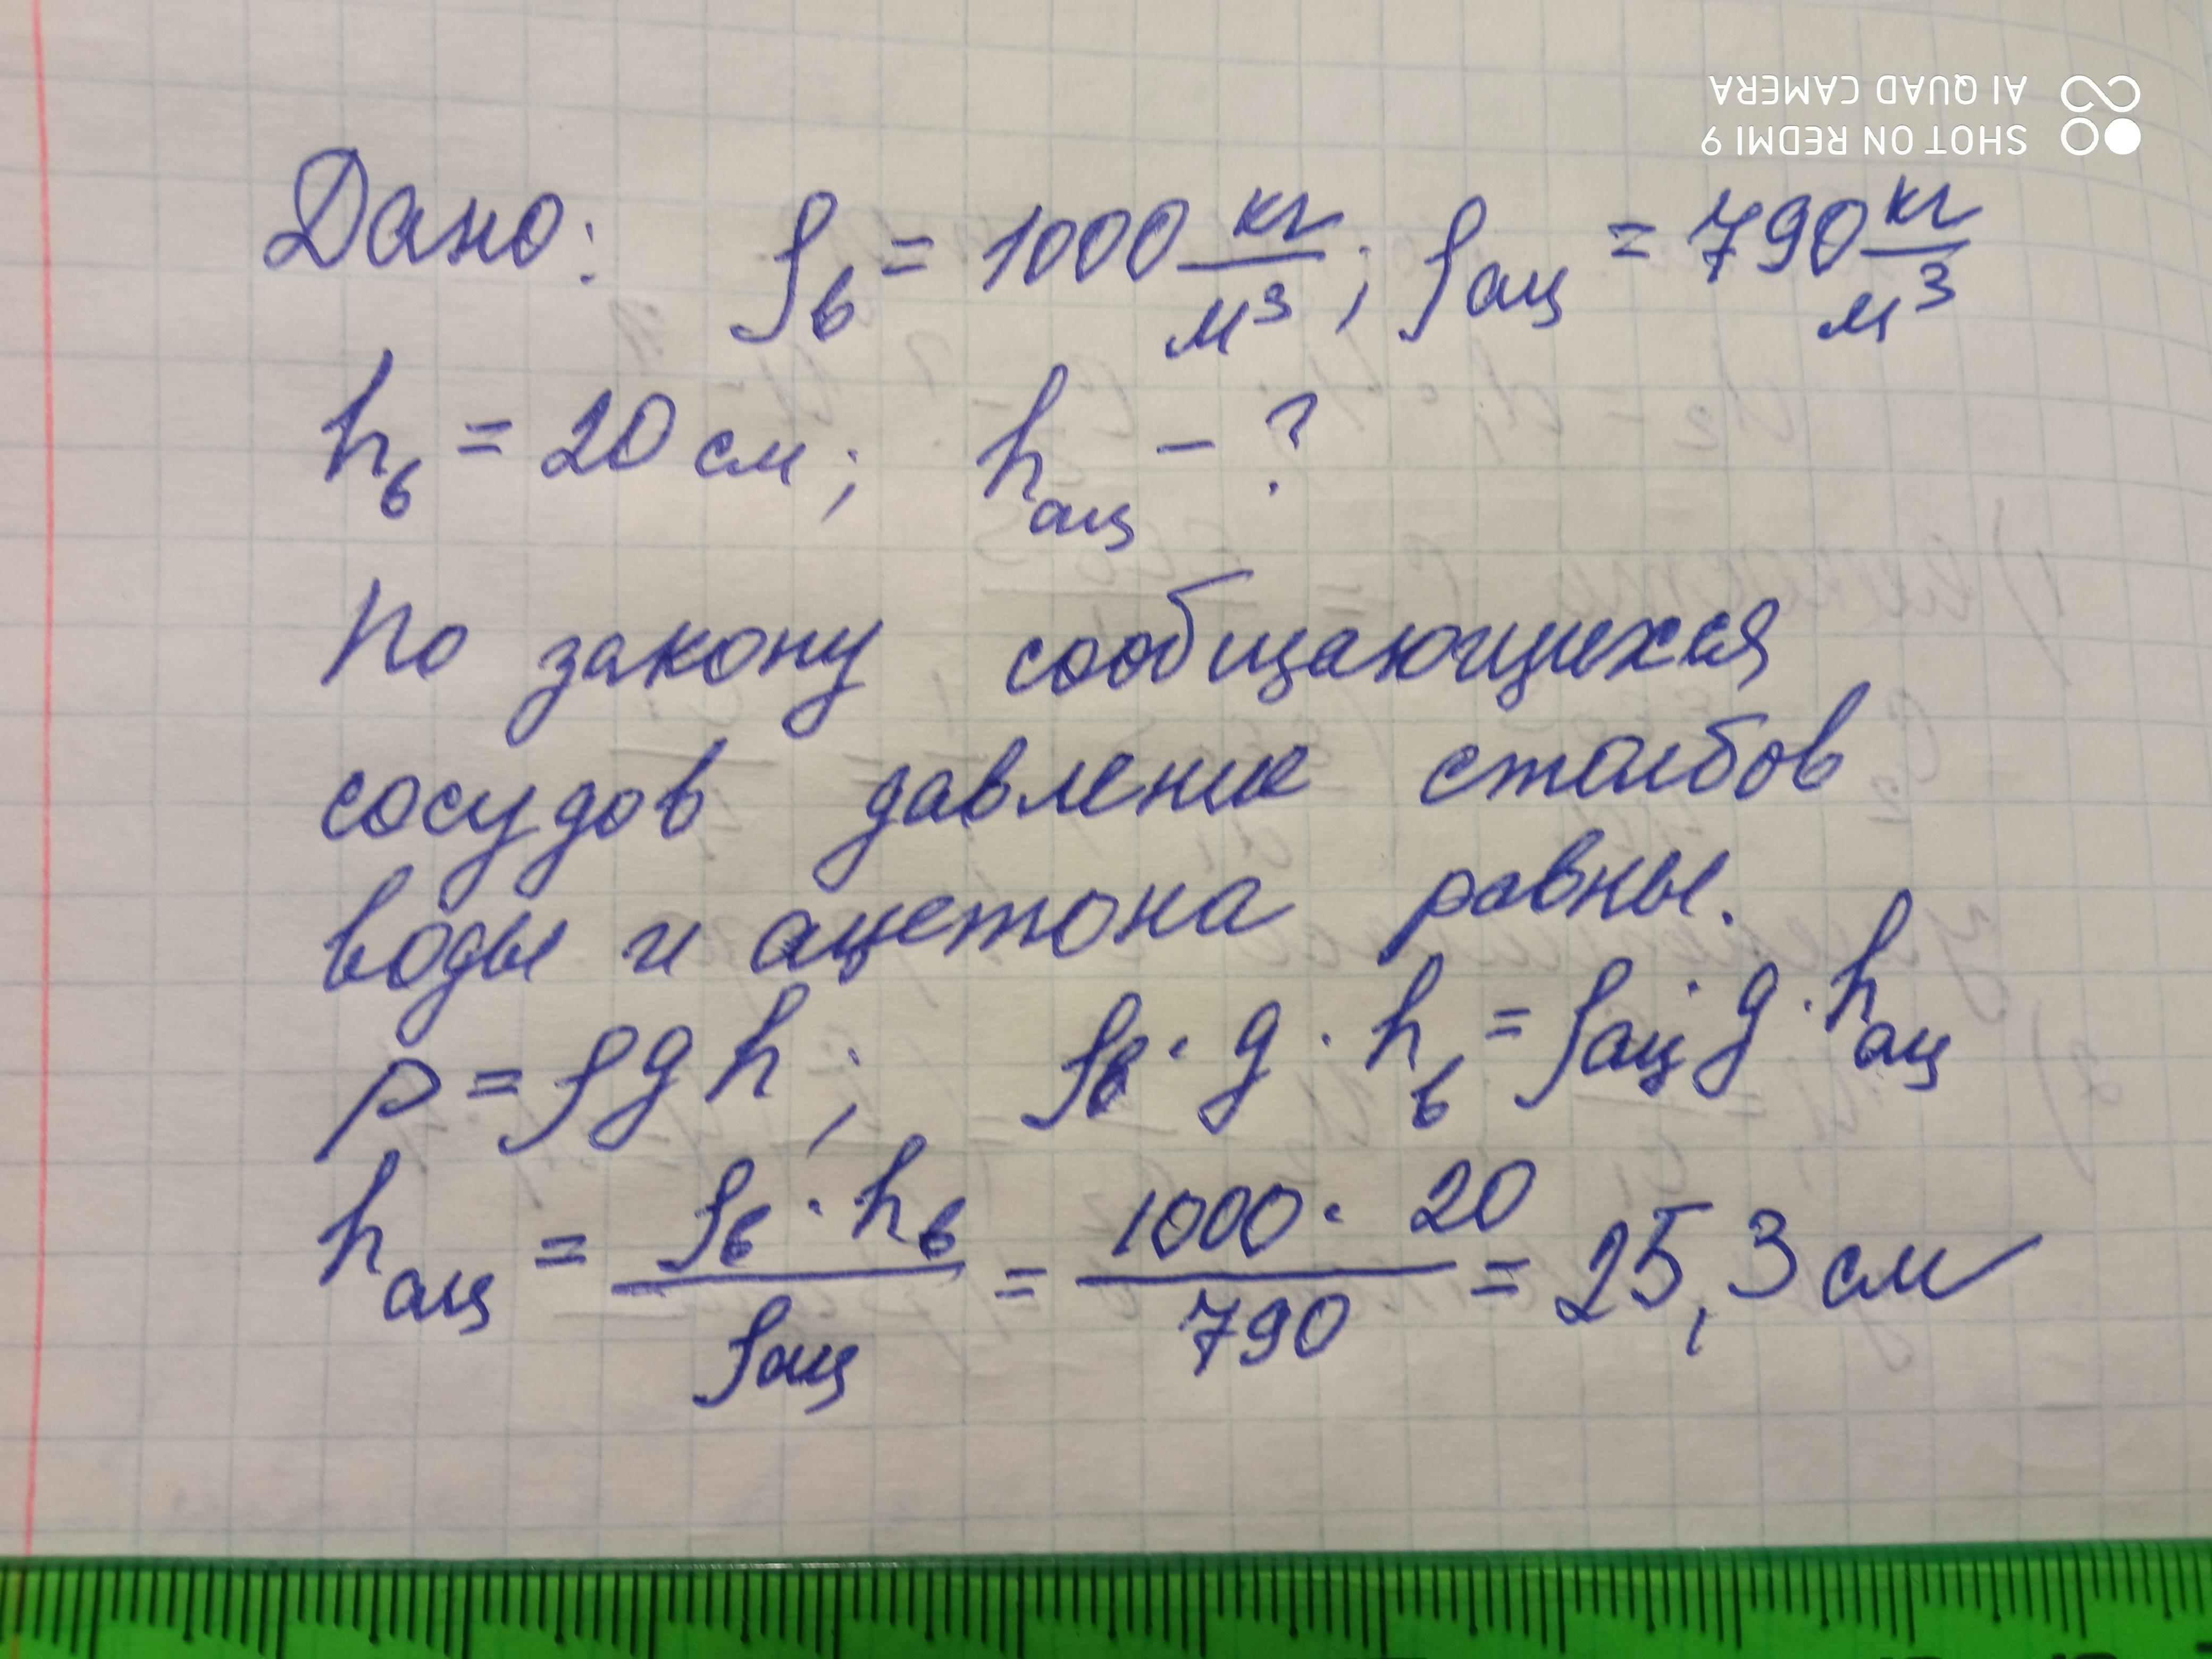 SHOT ON REDMI 9
AI QUAD CAMERA
Дано: ρв = 1000 кг/м³; ρац = 790 кг/м³
hв = 20 см; hац - ?
По закону сообщающихся
сосудов давление столбов
воды и ацетона равны.
p = ρgh; ρв · g · hв = ρац · g · hац
hац = ρв · hв / ρац = 1000 · 20 / 790 = 25,3 см